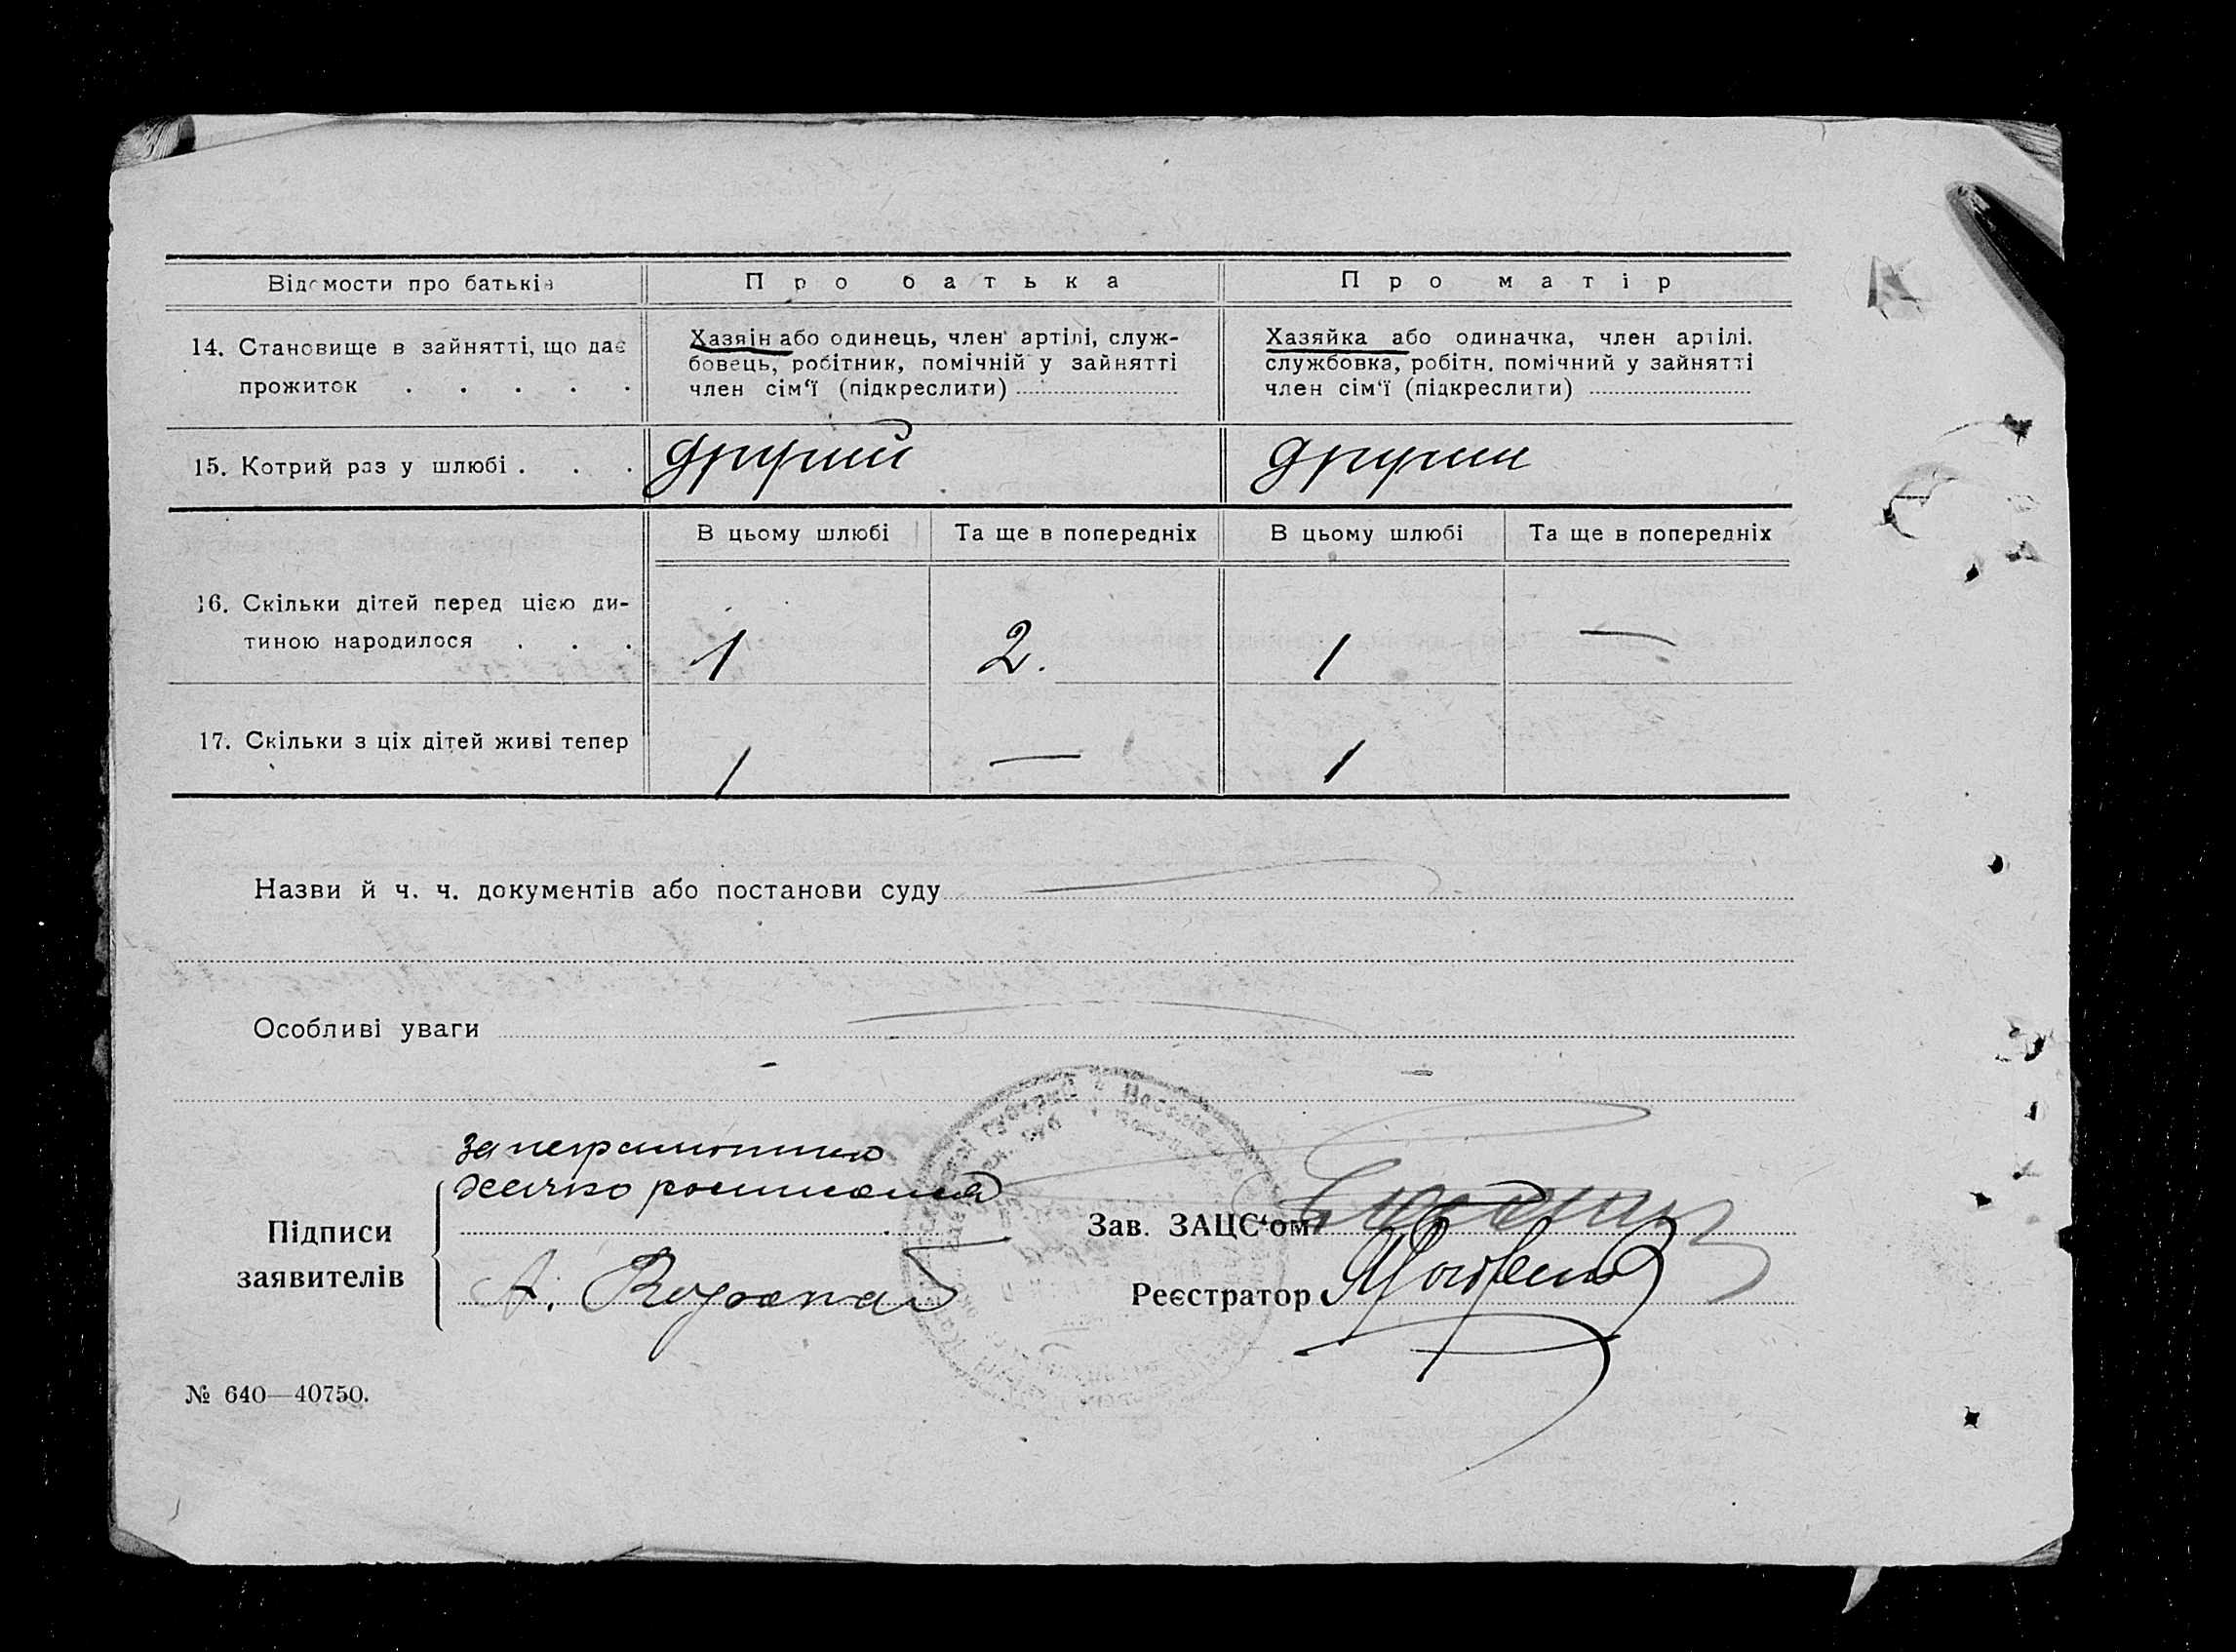 Відомости про батьків
Про батька
Про матір
14. Становище в зайнятті, що дає
прожиток . . . . .
Хазяін або одинець, член артілі, служ-
бовець, робітник, помічній у зайнятті
член сім‘ї (підкреслити)
Хазяйка або одиначка, член артілі.
службовка, робітн. помічний у зайнятті
член сім‘ї (підкреслити)
15. Котрий раз у шлюбі . . .
другий
други
В цьому шлюбі
Та ще в попередніх
В цьому шлюбі
Та ще в попередніх
16. Скільки дітей перед цією ди-
тиною народилося . . .
1
2.
1
—
17. Скільки з ціх дітей живі тепер
1
—
1
Назви й ч. ч. документів або постанови суду
Особливі уваги
за неграмотного
Підписи
заявителів
А.
Зав. ЗАЦС‘ом
Реєстратор
№ 640—40750.